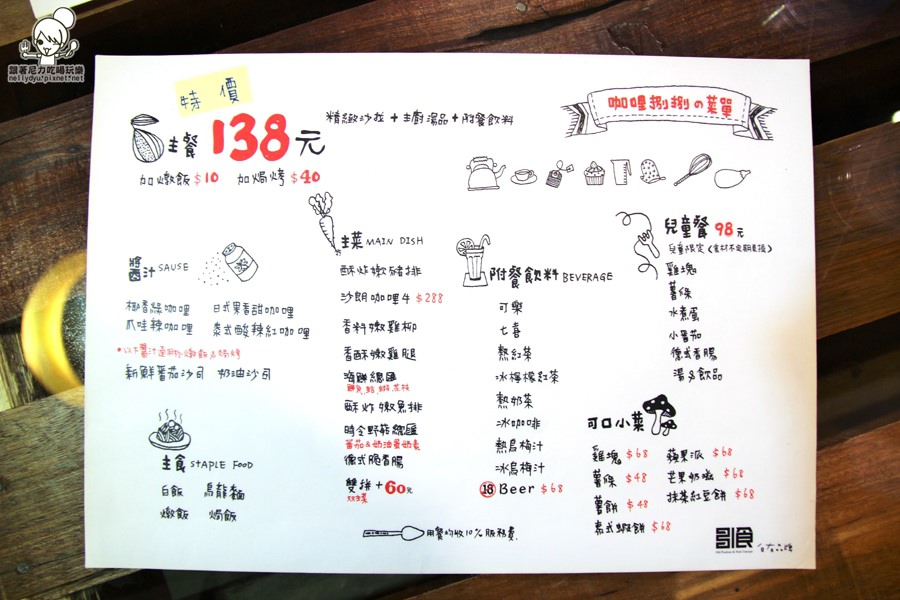 跟著尼力吃喝玩樂
nellydyu.pixnet.net
特價
主餐 138元
精緻沙拉+主廚湯品+附餐飲料
加燉飯$10 加焗烤$40
咖哩捌捌の菜單
醬汁 SAUSE
椰香綠咖哩 日式果香甜咖哩
爪哇辣咖哩 泰式酸辣紅咖哩
*以下醬汁適用於燉飯&焗烤
新鮮番茄沙司 奶油沙司
主食 STAPLE FOOD
白飯 烏龍麵
燉飯 焗飯
主菜 MAIN DISH
酥炸嫩豬排
沙朗咖哩牛 $288
香料嫩雞柳
香酥嫩雞腿
海鮮總匯
酥炸嫩魚排
時令野菇總匯
番茄&奶油蛋奶素
德式脆香腸
雙拼+60元
双主菜
附餐飲料 BEVERAGE
可樂
七喜
熱紅茶
冰檸檬紅茶
熱奶茶
冰咖啡
熱烏梅汁
冰烏梅汁
18 Beer $68
兒童餐 98元
兒童限定(食材不定期更換)
雞塊
薯條
水煮蛋
小番茄
德式香腸
湯&飲品
可口小菜
雞塊 $68 蘋果派 $68
薯條 $48 芒果奶酪 $68
薯餅 $48 抹茶紅豆餅 $68
泰式蝦餅 $68
用餐均收10%服務費
引食